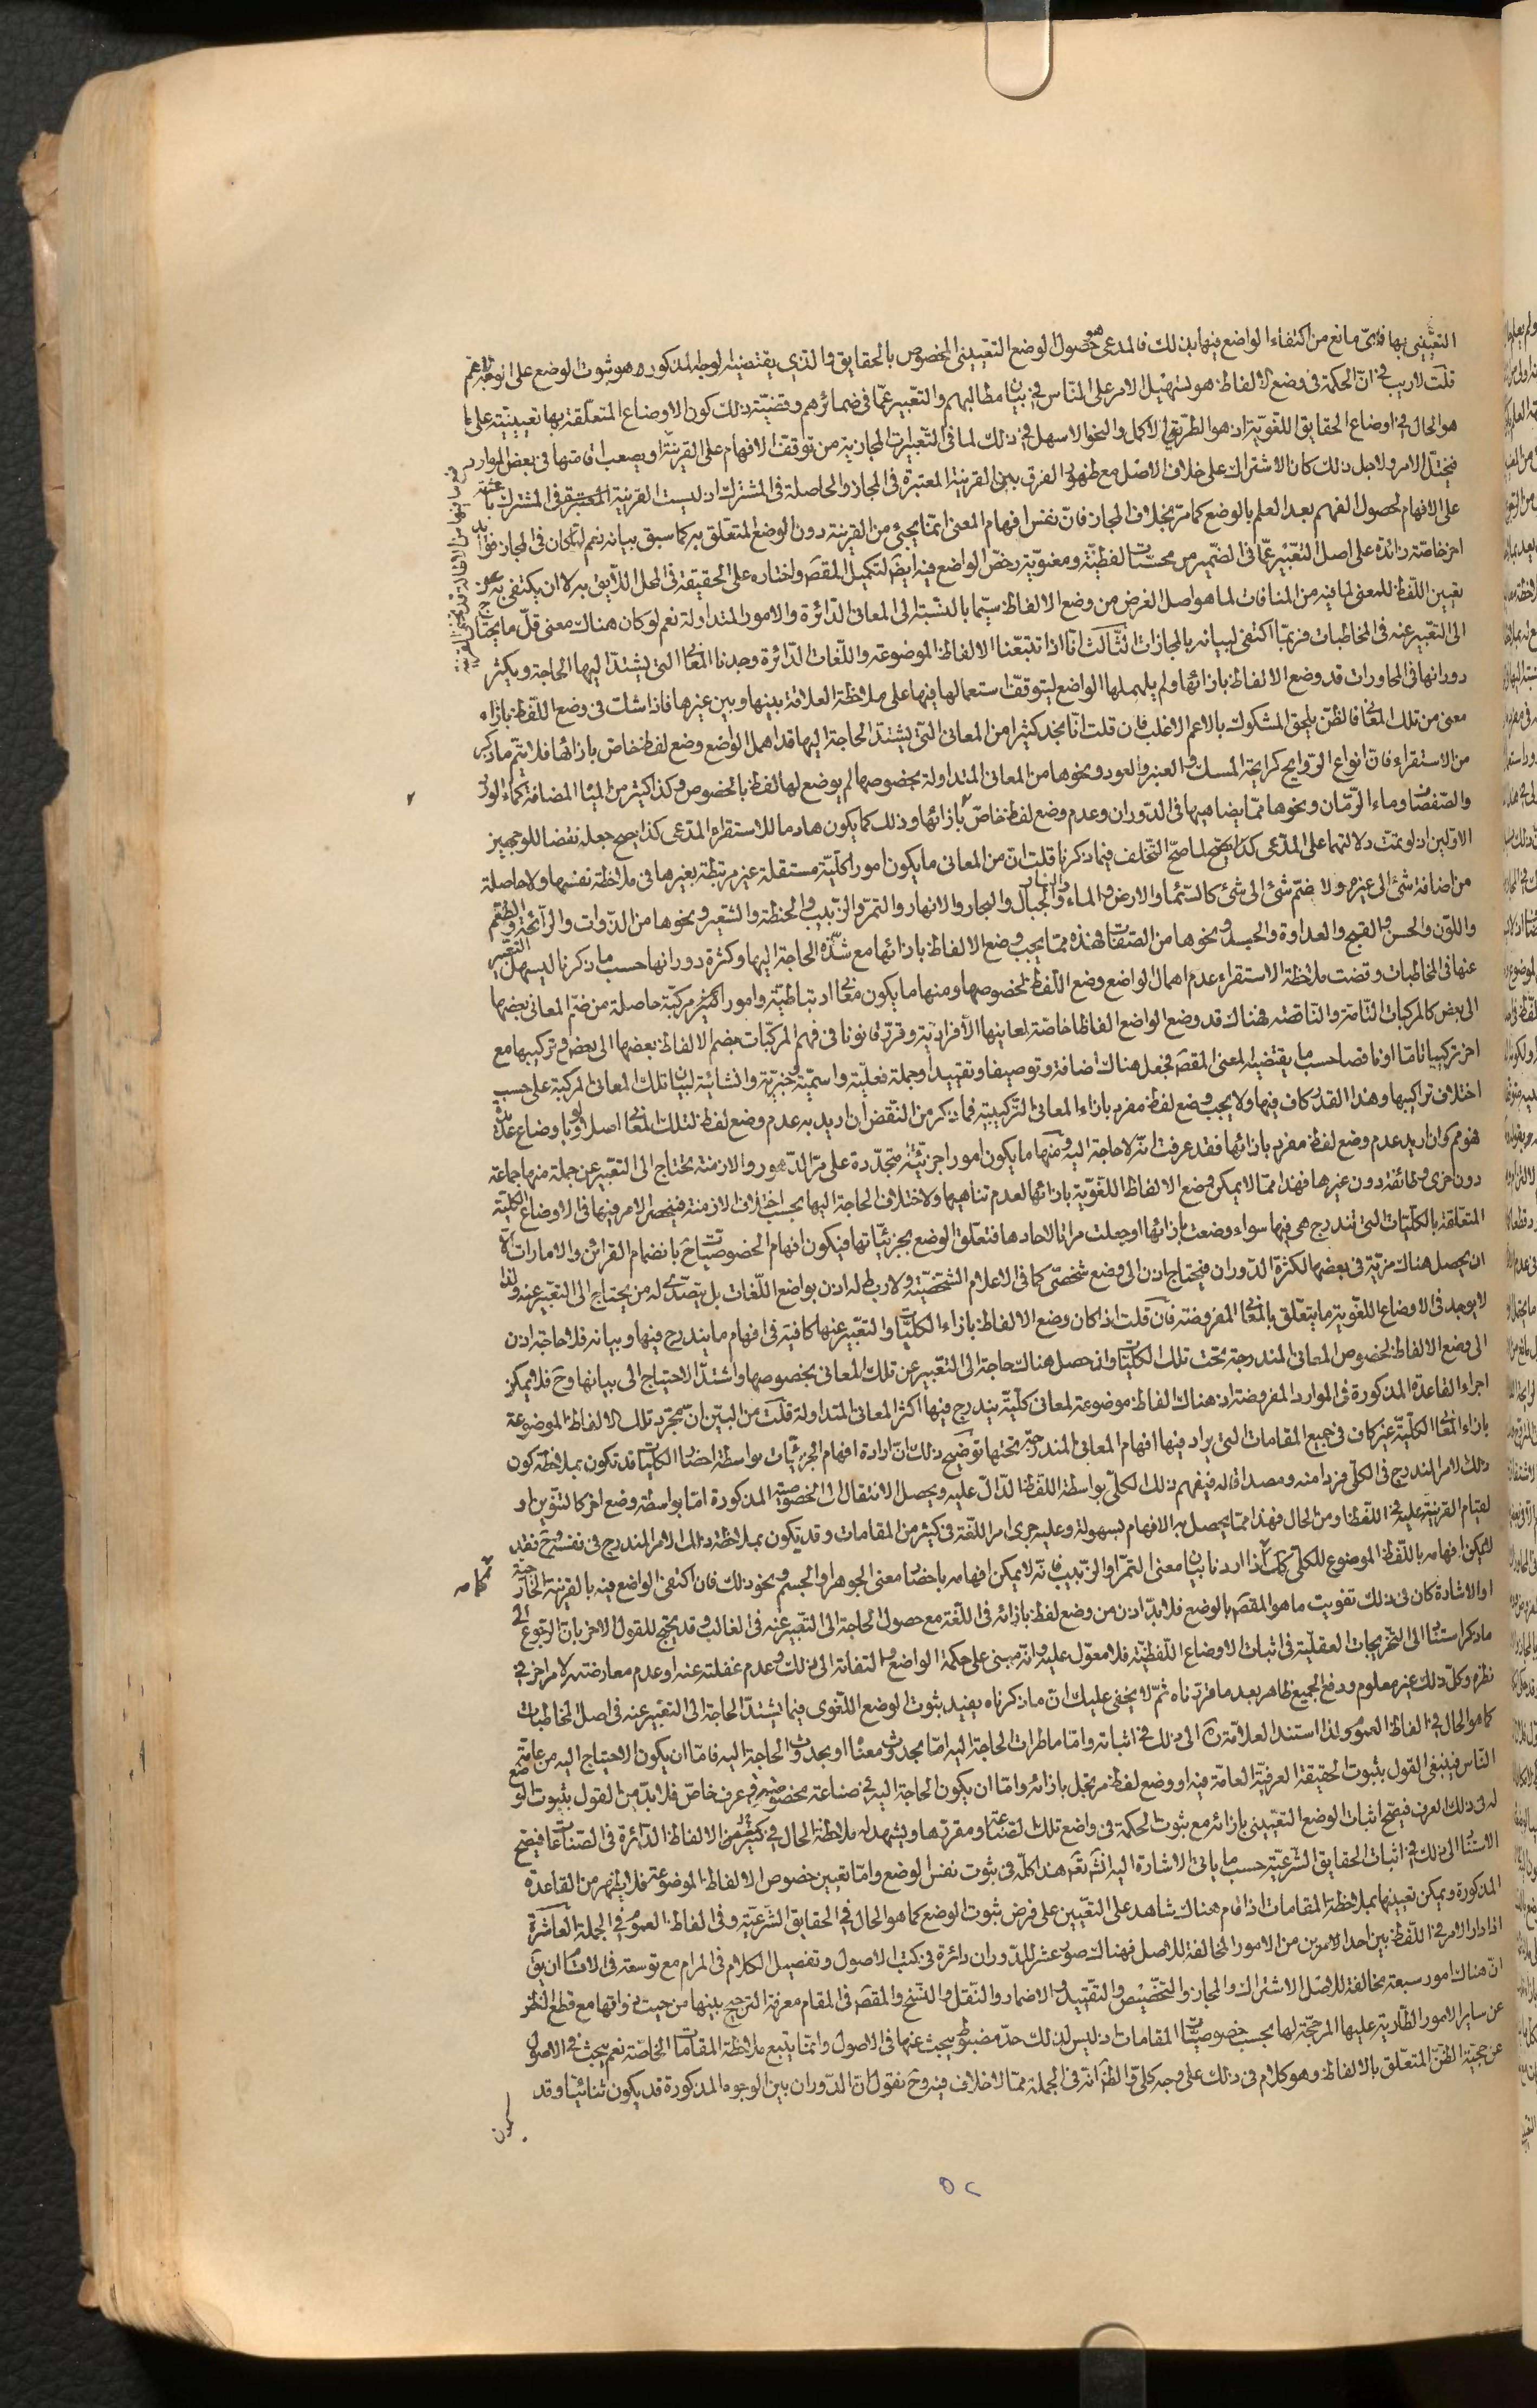 التعيّني بها فايّ مانع من اكتفاء الواضع فيها بذلك فالمدعى هو حصول الوضع التعييني المخصوص بالحقايق والذي يقتضيه الوجه المذكور هو ثبوت الوضع على الوجه الاعم
قلت لا ريب في انّ الحكمة في وضع الالفاظ هو تسهيل الامر على الناس في بيان مطالبهم والتعبير عمّا في ضمائرهم وقضيّة ذلك كون الاوضاع المتعلقة بها تعيينيّة على ما
هو الحال في اوضاع الحقايق اللغويّة اذ هو الطريق الاكمل والنحو الاسهل في ذلك لما في التعبيرات المجازية من توقف الافهام على القرينة او يصعب اقامتها في بعض الموارد
فيختلّ الامر ولاجل ذلك كان الاشتراك على خلاف الاصل مع ظهور الفرق بين القرينة المعتبرة في المجاز والحاصلة في المشترك اذ ليست القرينة المعتبرة في المشترك باعثة
على الافهام لحصول الفهم بعد العلم بالوضع كما مرّ بخلاف المجاز فانّ نفس افهام المعنى انما يجيئ من القرينة دون الوضع المتعلق به كما سبق بيانه نعم لما كان في المجاز فوائد
اخر خاصّة زائدة على اصل التعبير عمّا في الضمير من محسّنات لفظيّة ومعنويّة رخّص الواضع فيه ايضا لتكميل المقصَ واختاره على الحقيقة في المحل اللايق به لا ان يكتفي به عن
تعيين اللفظ للمعنى لما فيه من المنافات لما هو اصل الغرض من وضع الالفاظ سيّما بالنسبة الى المعاني الدائرة والامور المتداولة نعم لو كان هناك معنى قلّ ما يحتاج
الى التعبير عنه في المخاطبات فربّما اكتفى لبيانه بالمجازات الثالث انّا اذا تتبّعنا الالفاظ الموضوعة واللغات الدائرة وجدنا المعاني التي يشتدّ اليها الحاجة ويكثر
دورانها في المحاورات قد وضع الالفاظ بازائها ولم يهملها الواضع ليتوقف استعمالها فيها على ملاحظة العلاقة بينها وبين غيرها فاذا شك في وضع اللفظ بازاء
معنى من تلك المعاني فالظنّ يلحق المشكوك بالاعم الاغلب فان قلت انّا نجد كثيرا من المعاني التي يشتدّ الحاجة اليها قد اهمل الواضع وضع لفظ خاص بازائها فلا يتم ما ذكر
من الاستقراء فانّ انواع الروايح كرايحة المسك والعنبر والعود ونحوها من المعاني المتداولة بخصوصها لم يوضع لها لفظ بالخصوص وكذا كثير من المياه المضافة كماء الورد
والصفصاف وماء الرمّان ونحوها ممّا يضاهيها في الدوران وعدم وضع لفظ خاصّ بازائها وذلك كما يكون هادما للاستقراء المدّعى كذا يصح جعله نقضا للوجهين
الاوّلين اذ لو تمّت دلالتهما على المدّعى كذا لما صحّ التخلف فيما ذكر قلت انّ من المعاني ما يكون امورا كليّة مستقلة غير مرتبطة بغيرها في ملاحظة نفسها ولا حاصلة
من اضافة شئ الى غيره ولا ضمّ شئ الى شئ كالسّماء والارض والماء والنار والجبال والبحار والانهار والتمر والزبيب والحنطة والشعير ونحوها من الذوات والرائحة والطعم
واللون والحسن والقبح والعداوة والحسد ونحوها من الصفات فهذه ممّا يجب وضع الالفاظ بازائها مع شدّة الحاجة اليها وكثرة دورانها حسب ما ذكرنا ليسهل التعبير
عنها في المخاطبات وقضت ملاحظة الاستقراء عدم اهمال الواضع وضع اللفظ لخصوصها ومنها ما يكون معاني ارتباطيّة وامورا مركبّة حاصلة من ضمّ المعاني بعضها
الى بعض كالمركبات التّامة والناقصة فهناك قد وضع الواضع الفاظا خاصّة لمعانيها الافراديّة وقرّر قانونا في فهم المركّبات بضم الالفاظ بعضها الى بعض وتركيبها مع
اخر تركيبا تامّا او ناقصا حسب ما يقتضيه المعنى المقصَ فجعل هناك اضافة وتوصيفا وتقييدا وجملة فعليّة واسميّة وخبريّة وانشائية لبيان تلك المعاني المركبة على حسب
اختلاف تراكيبها وهذا القدر كاف فيها ولا يجب وضع لفظ مفرد بازاء المعاني التركيبيّة فما ذكر من النقض ان اريد به عدم وضع لفظ لتلك المعاني اصلا ولو باوضاع عديدة
فهو مم وان اريد عدم وضع لفظ مفرد بازائها فقد عرفت انّه لا حاجة اليه ومنها ما يكون امورا جزئيّة متجدّدة على مرّ الدّهور والازمنة يحتاج الى التعبير عن جملة منها جماعة
دون اخرى وطائفة دون غيرها فهذا ممّا لا يمكن وضع الالفاظ اللغويّة بازائها لعدم تناهيها ولاختلاف الحاجة اليها بحسب اختلاف الازمنة فينحصر الامر فيها في الاوضاع الكلية
المتعلقة بالكلّيات التي تندرج هي فيها سواء وضعت بازائها او جعلت مراتا لاحادها فتعلّق الوضع بجزئيّاتها فيكون افهام الخصوصيات ح بانضمام القرائن والامارات الا
ان يحصل هناك مزيّة في بعضها لكثرة الدوران فيحتاج اذن الى وضع شخصّي كما في الاعلام الشخصيّة ولا ربط له اذن بواضع اللغات بل يتصدّى له من يحتاج الى التعبير عنه ولذا
لا يوجد في الاوضاع اللغوية ما يتعلق بالمعاني المفروضة فان قلت اذا كان وضع الالفاظ بازاء الكليّات والتعبير عنها كافية في افهام ما يندرج فيها وبيانه فلا حاجة اذن
الى وضع الالفاظ لخصوص المعاني المندرجة تحت تلك الكليّات وان حصل هناك حاجة الى التعبير عن تلك المعاني بخصوصها واشتدّ الاحتياج الى بيانها وح فلا يمكن
اجراء القاعدة المذكورة في الموارد المفروضة اذ هناك الفاظ موضوعة لمعاني كليّة يندرج فيها اكثر المعاني المتداولة قلت من البيّن انّ مجرّد تلك الالفاظ الموضوعة
بازاء المعاني الكليّة غير كاف في جميع المقامات التي يراد فيها افهام المعاني المندرجة تحتها توضيح ذلك انّ ارادة افهام الجزئيّات بواسطة احضار الكليّات قد تكون بملاحظة كون
ذلك الامر المندرج في الكلّي فردا منه ومصداقا له فيفهم ذلك الكلّي بواسطة اللفظ الدّال عليه ويحصل الانتقال الى الخصوصية المذكورة امّا بواسطة وضع اخر كالتنوين او
لقيام القرينة عليه في اللفظ او من الحال فهذا ممّا يحصل به الافهام بسهولة وعليه جرى امر اللغة في كثير من المقامات وقد يكون بملاحظة ذلك الامر المندرج في نفسه وح فقد
لا يمكن افهامه باللفظ الموضوع للكلّي كما اذا اردنا بيان معنى التمر او الزبيب فانّه لا يمكن افهامه باحضار معنى الجوهر او الجسم ونحو ذلك فان اكتفى الواضع فيه بالقرينة الخارجية
او الاشارة كان في ذلك تفويت ما هو المقصَ بالوضع فلا بدّ اذن من وضع لفظ بازائه في اللغة مع حصول الحاجة الى التعبير عنه في الغالب وقد يحتج للقول الاخر بانّ الرجوع الى
ما ذكر استناد الى التخريجات العقليّة في اثبات الاوضاع اللفظيّة فلا معوّل عليه وانّه مبني على حكمة الواضع والتفاته الى ذلك وعدم غفلته عنه او عدم معارضته لامر اخر في
نظره وكلّ ذلك غير معلوم ودفع الجميع ظاهر بعد ما قرّرناه ثمّ لا يخفى عليك انّ ما ذكرناه يفيد ثبوت الوضع اللغوي فيما يشتدّ الحاجة الى التعبير عنه في اصل المخاطبات
كما هو الحال في الفاظ العموم ولذا استند العلامة ره الى ذلك في اثباته وامّا ما طرأت الحاجة اليه امّا بحدوث معناه او بحدوث الحاجة اليه فامّا ان يكون الاحتياج اليه من عامّة
الناس فينبغي القول بثبوت الحقيقة العرفيّة العامّة فيه او وضع لفظ مرتجل بازائه وامّا ان يكون الحاجة اليه في صناعة مخصوصة وعرف خاصّ فلا بدّ من القول بثبوت الوضع
له في ذلك العرف فيصّح اثبات الوضع التعييني بازائه مع ثبوت الحكمة في واضع تلك الصناعة ومقررها ويشهد له ملاحظة الحال في كثير من الالفاظ الدائرة في الصناعات فيصّح
الاستناد الى ذلك في اثبات الحقايق الشرعيّة حسب ما ياتي الاشارة اليه انش تع هذا كلّه في ثبوت نفس الوضع وامّا تعيين خصوص الالفاظ الموضوعة فلا يظهر من القاعدة
المذكورة ويمكن تعيينها بملاحظة المقامات اذا قام هناك شاهد على التعيين على فرض ثبوت الوضع كما هو الحال في الحقايق الشرعيّة وفي الفاظ العموم في الجملة العاشرة
اذا دار الامر في اللفظ بين احد الامرين من الامور المخالفة للاصل فهناك صور عشر للدوران دائرة في كتب الاصول وتفصيل الكلام في المرام مع توسعة في الاقسام ان يق
انّ هناك امور سبعة مخالفة للاصل الاشتراك والمجاز والتخصيص والتقييد والاضمار والنقل والنسخ والمقصَ في المقام معرفة الترجيح بينها من حيث ذواتها مع قطع النظر
عن ساير الامور الطارية عليها المرجحّة لها بحسب خصوصيّات المقامات اذ ليس لذلك حدّ مضبوط يبحث عنها في الاصول وانّما يتبع ملاحظة المقامات الخاصّة نعم يبحث في الاصول
عن حجيّة الظنّ المتعلّق بالالفاظ وهو كلام في ذلك على وجه كلّي والظ انّه في الجملة ممّا لا خلاف فيه وح نقول انّ الدّوران بين الوجوه المذكورة قد يكون ثنائيّا وقد
يكون
٥٢